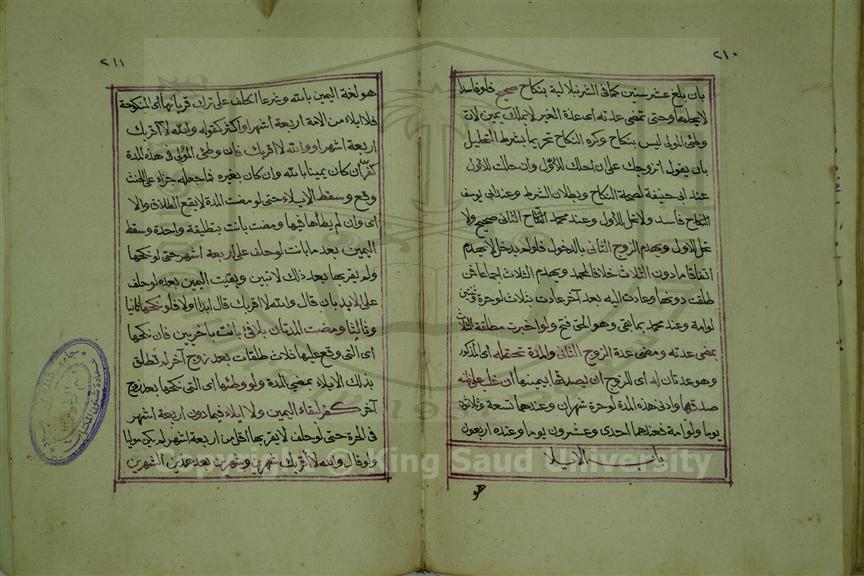 ٢١٠
بان بلغ عشر سنين كما فى الشرنبلالية بنكاح صحيح فلو فاسدا
لا يحلها وحتى تمضى عدته اى عدة الغير لا بملك يمين لان
وطئ المولى ليس بنكاح وكره النكاح تحريما بشرط التحليل
بان يقول اتزوجك على ان احلك للاول وان حلت للاول
عند ابى حنيفة لصحة النكاح وبطلان الشرط وعند ابى يوسف
النكاح فاسد ولا تحل للاول وعند محمد النكاح الثانى صحيح ولا
تحل للاول ويهدم الزوج الثانى بالدخول فلو لم يدخل لا يهدم
اتفاقا ما دون الثلاث خلافا لمحمد ويهدم الثلاث اجماعا فمن
طلقت دونها وعادت اليه بعد آخر عادت بثلاث لو حرة وثنتين
لو امة وعند محمد بما بقى وهو الحق فتح ولو اخبرت مطلقة الثلاث
بمضى عدته ومضى عدة الزوج الثانى والمدة تحتمله اى المذكور
وهو عدتان له اى للزوج ان يصدقها ان غلب على ظنه
صدقها وادنى هذه المدة لو حرة شهران وعندهما تسعة وثلاثون
يوما ولو امة فعندهما احدى وعشرون يوما وعنده اربعون
باب الايلا
هو
٢١١
هو لغة اليمين بالله وشرعا الحلف على ترك قربانها اى المنكوحة
فلا ايلاء من الامة اربعة اشهر او اكثر كقوله والله لا اقربك
اربعة اشهر او والله لا اقربك فان وطئ المولى فى هذه المدة
كفر ان كان يمينا بالله وان كان بغيره فما جعله جزاء على الحنث
وقع وسقط الايلاء حتى لو مضت المدة لا يقع الطلاق والا
اى وان لم يطأها فيها ومضت بانت بتطليقة واحدة وسقط
اليمين بعد ما بانت لو حلف على اربعة اشهر حتى لو نكحها
ولم يقربها بعد ذلك لا تبين وبقيت اليمين بعده لو حلف
على الابد بان قال والله لا اقربك قال ابدا اولا فلو نكحها ثانيا
وثالثا ومضت المدتان بلا فئ بانت باخريين فان نكحها
اى التى وقع عليها ثلاث طلقات بعد زوج آخر لم تطلق
بذلك الايلاء بمضى المدة ولو وطئها اى التى نكحها بعد زوج
آخر كفر لبقاء اليمين ولا ايلاء فيما دون اربعة اشهر
فى الحرة حتى لو حلف لا يقربها اقل من اربعة اشهر لم يكن موليا
ولو قال والله لا اقربك شهرين وشهرين بعد هذين الشهرين
© King Saud University